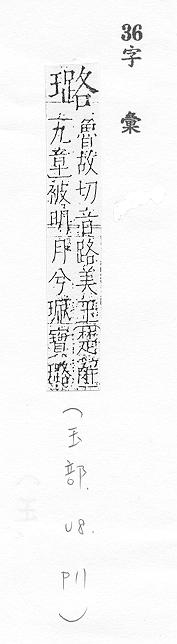 36字 彙
璐
魯故切音路美玉楚辭
九章被明月兮珮寶璐
(玉部. 午8. P11)